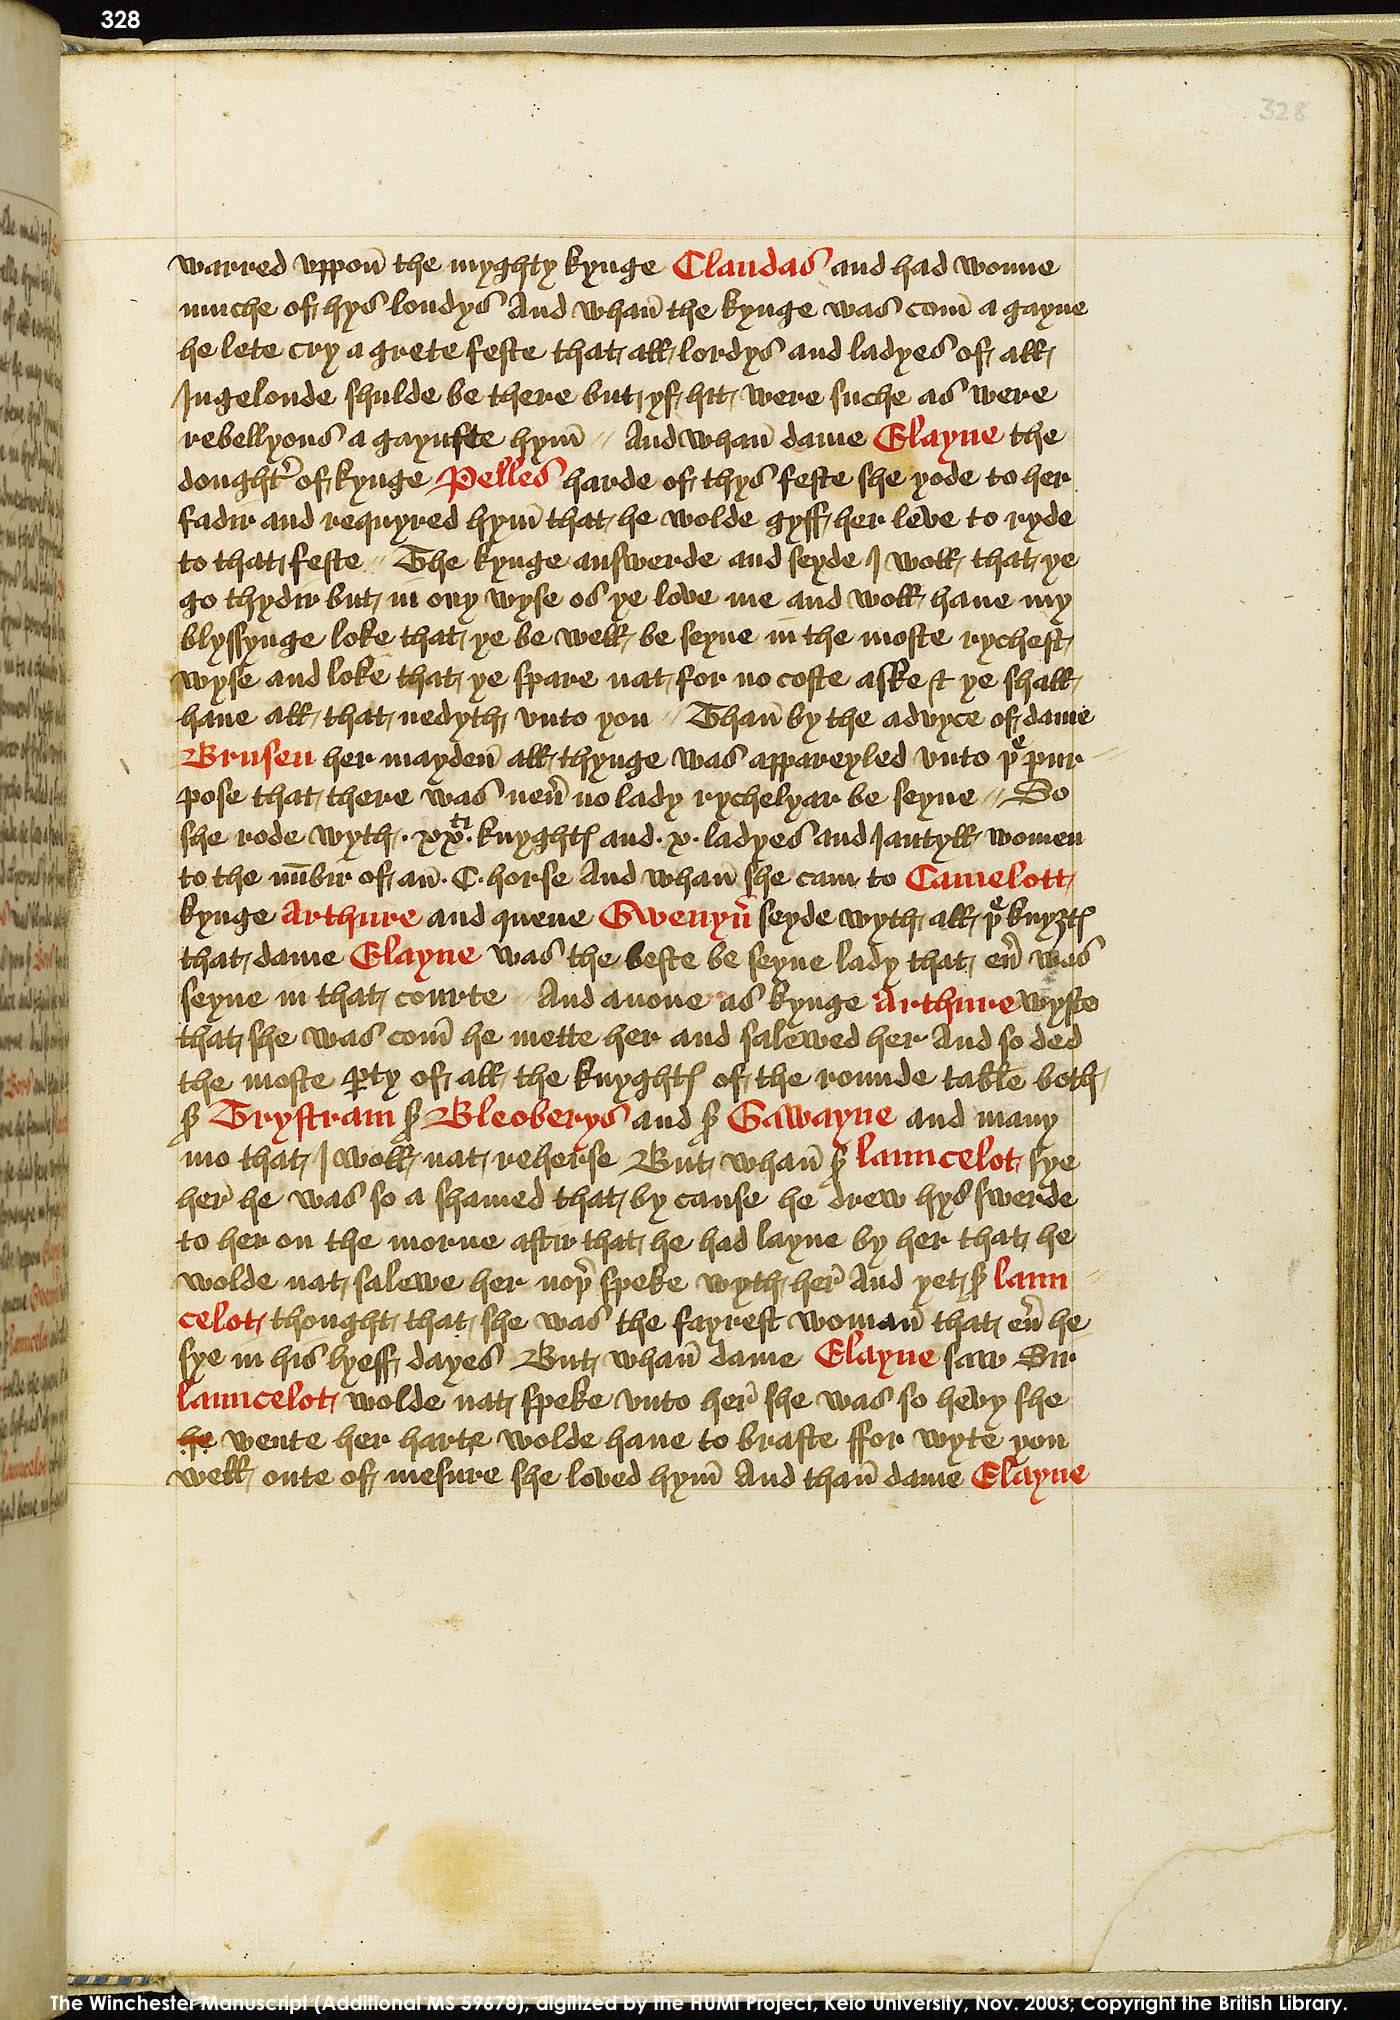 328
328
warred vppon̄ the myghty kynge Claudas and had wonne
muche of hys londys And whan̄ the kynge was com̄ a gayne
he lete cry a grete feste that all lordys and ladyes of all
Ingelonde shulde be there but yf hit were suche as were
rebellyons a gaynste hym̄ // And whan̄ dame Elayne the
doughtr̄ of kynge Pelles harde of thys feste she yode to her
fadir and requyred hym̄ that he wolde gyff her leve to ryde
to that feste // The kynge answerde and seyde I woll that ye
go thydir but in ony wyse os ye love me and woll haue my
blyssynge loke that ye be well be seyne in the moste rychest
wyse and loke that ye spare nat for no coste aske & ye shall
haue all that nedyth vnto you // Than̄ by the advyce of dame
Brusen her mayden̄ all thynge was appareyled vnto þͤ pur
pose that there was neu̅ no lady rychelyar be seyne // So
she rode wyth · xxᵗⁱ · knyghtꝭ and · x · ladyes and Jantyll women
to the nūbir of an̄ · C · horse And whan̄ she cam to Camelott
kynge Arthure and quene Gwenyu̅ seyde wyth all þͤ knyztꝭ
that dame Elayne was the beste be seyne lady that eu̅ was
seyne in that courte // And anone as kynge Arthure wyste
that she was com̄ he mette her and salewed her And so ded
the moste ꝑty of all the knyghtꝭ of the rounde table both
sꝭ Trystram sꝭ Bleoberys and sꝭ Gawayne and many
mo that I woll nat reherse But whan̄ sꝭ launcelot sye
her he was so a shamed that by cause he drew hys swerde
to her on the morne aftir that he had layne by her that he
wolde nat salewe her noþ̄ speke wyth her And yet sꝭ laun
celot thought that she was the fayrest woman̄ that eu̅ he
sye in his lyeff dayes But whan̄ dame Elayne saw Sir
launcelot wolde nat speke vnto her she was so hevy she
he wente her harte wolde haue to braste ffor wyte you
well oute of mesure she loved hym̄ And than̄ dame Elayne
The Winchester Manuscript (Additional MS 59678), digitized by the HUMI Project, Keio University, Nov. 2003; Copyright the British Library.